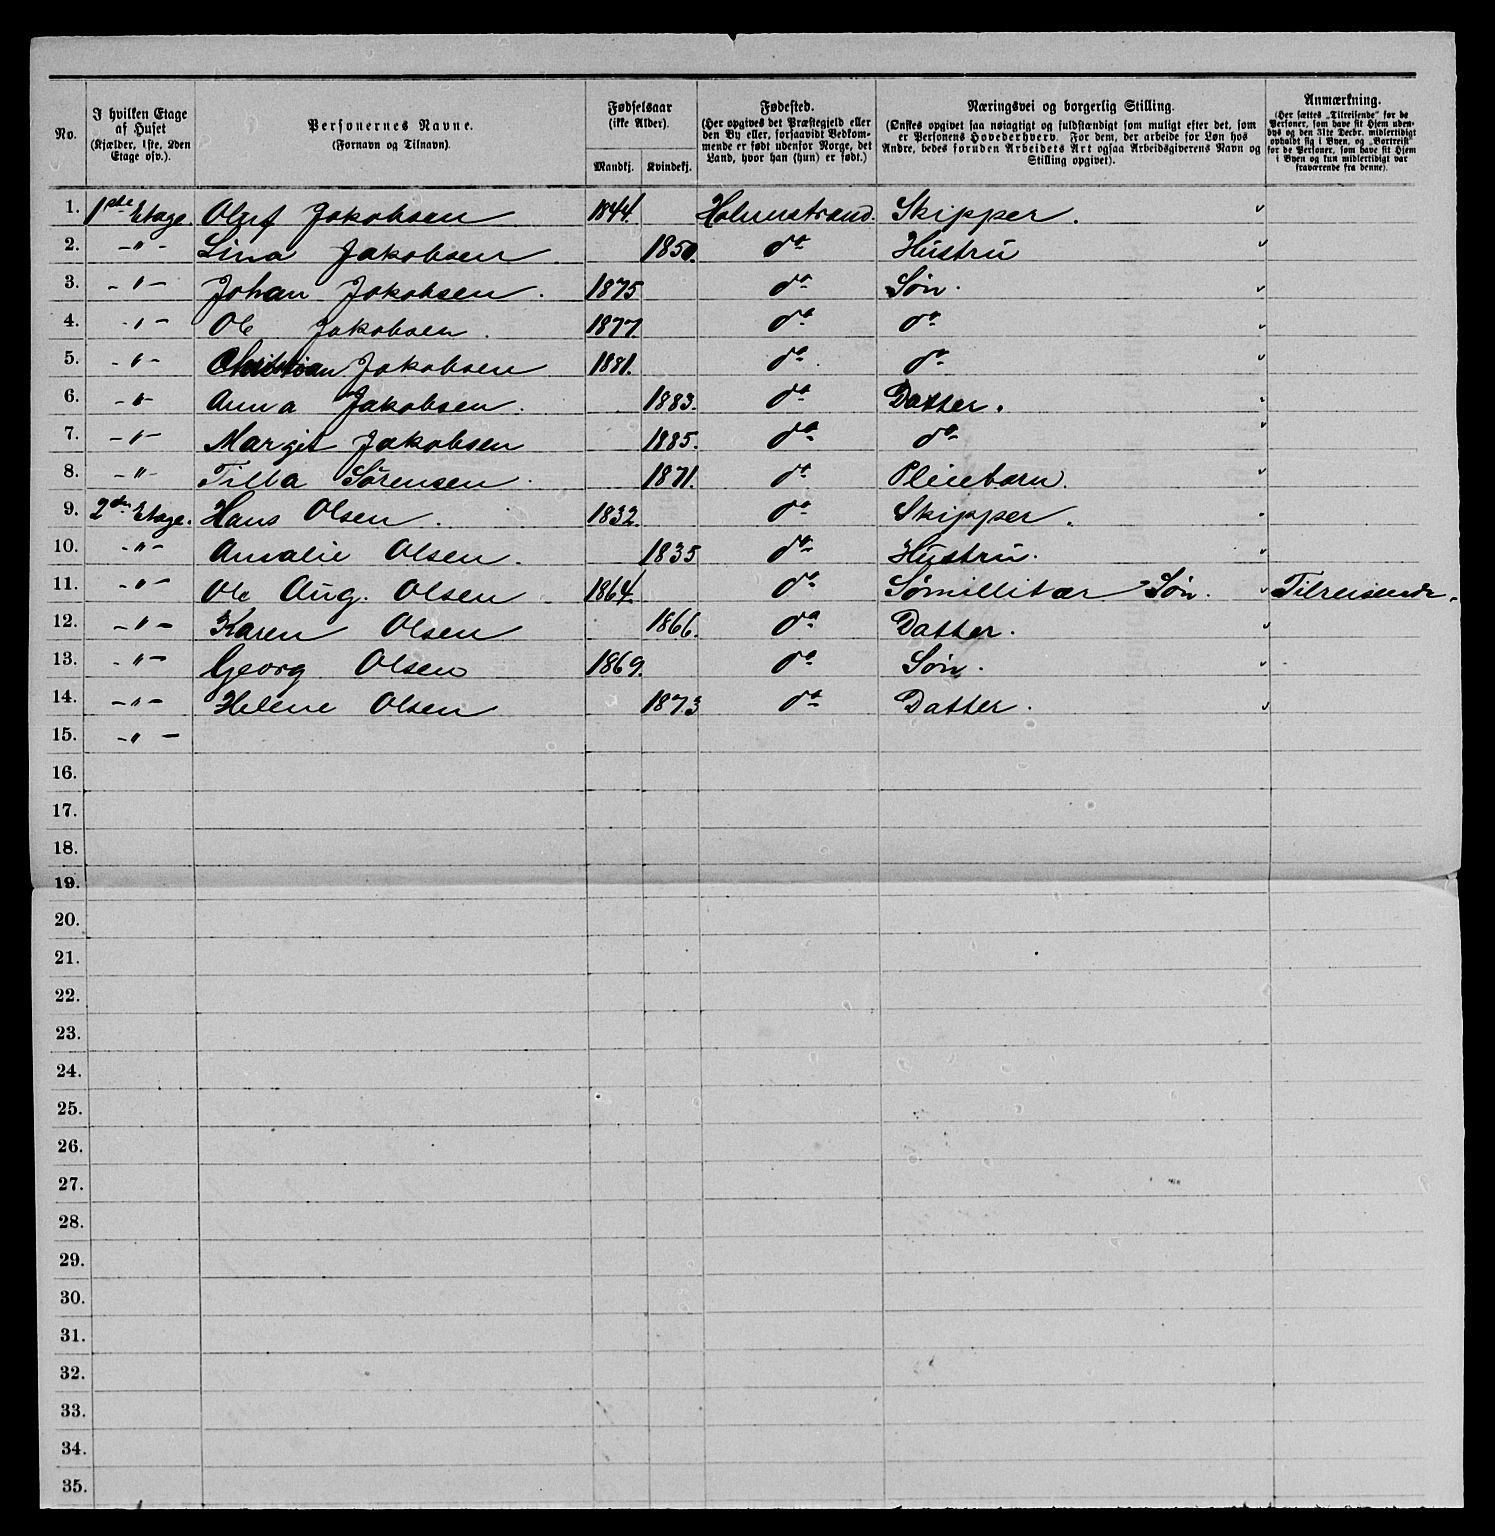 No.
I hvilken Etage af Huset (Kjælder, 1ste, 2den Etage osv.).
Personernes Navne. (Fornavn og Tilnavn).
Fødselsaar (ikke Alder).
Mandkj. Kvindekj.
Fødested. (Her opgives det Præstegjeld eller den By eller, forsaavidt Bedkommende er født udenfor Norge, det Land, hvor han (hun) er født.)
Næringsvei og borgerlig Stilling. (Ønskes opgivet saa nøiagtigt og fuldstændigt som muligt efter det, som er Personens Hovederhverv. For dem, der arbeide for Løn hos Andre, bedes foruden Arbeidets Art ogsaa Arbeidsgiverens Navn og Stilling opgivet).
Anmærkning. (Her sættes „Tilreisende" for de Personer, som have sit Hjem udenbys og den 31te Decbr. midlertidigt opholdt sig i Byen, og „Bortreist" for de Personer, som have sit Hjem i Byen og kun midlertidigt var fraværende fra denne).
1. 1ste Etage. Oluf Jakobsen 1844. Holmestrand. Skipper.
2. -"- Lina Jakobsen. 1850. do Hustru
3. -"- Johan Jakobsen. 1875 do Søn.
4. -"- Ole Jakobsen. 1877. do do
5. -"- Christian Jakobsen 1881. do do
6. -"- Anna Jakobsen. 1883. do Datter.
7. -"- Margit Jakobsen 1885. do do
8. -"- Tilla Sørensen. 1871. do Pleiebarn.
9. 2den Etage. Hans Olsen. 1832. do Skipper.
10. -"- Amalie Olsen. 1835 do Hustru.
11. -"- Ole Aug. Olsen. 1864. do Sømillitær Søn. Tilreisende.
12. -"- Karen Olsen 1866. do Datter.
13. -"- Georg Olsen 1869. do Søn.
14. -"- Helene Olsen 1873 do Datter.
15. -"-
16.
17.
18.
19.
20.
21.
22.
23.
24.
25.
26.
27.
28.
29.
30.
31.
32.
33.
34.
35.